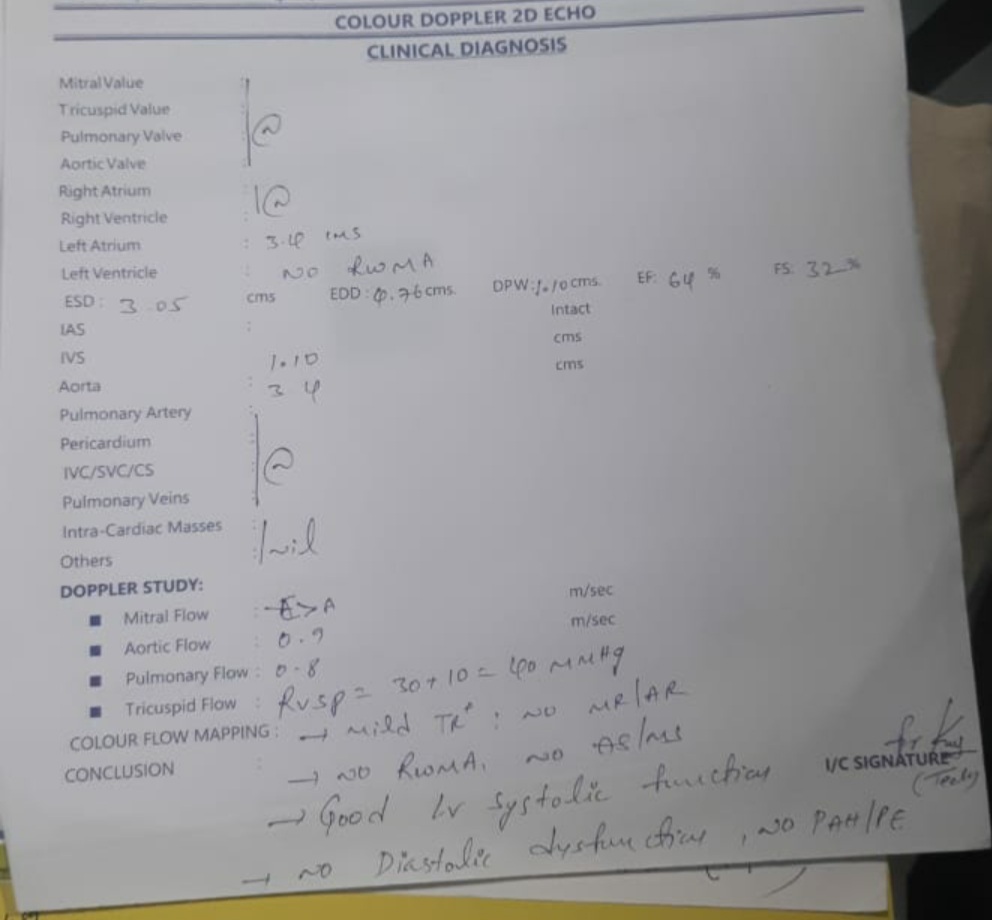 COLOUR DOPPLER 2D ECHO
CLINICAL DIAGNOSIS
Mitral Value :
Tricuspid Value :
Pulmonary Valve : (N)
Aortic Valve :
Right Atrium : (N)
Right Ventricle :
Left Atrium : 3.4 cms
Left Ventricle : NO RWMA
ESD : 3.05 cms EDD : 4.76 cms. DPW : 1.10 cms. EF: 64 % FS: 32 %
IAS : Intact
IVS 1.10 cms
Aorta : 3.4 cms
Pulmonary Artery :
Pericardium :
IVC/SVC/CS : (N)
Pulmonary Veins :
Intra-Cardiac Masses :
Others : Nil
DOPPLER STUDY:
■ Mitral Flow : E>A m/sec
■ Aortic Flow : 0.9 m/sec
■ Pulmonary Flow : 0.8
■ Tricuspid Flow : RVSP = 30+10 = 40 MMHg
COLOUR FLOW MAPPING : → Mild TR : NO MR/AR
CONCLUSION : → NO RWMA. NO AS/MS
I/C SIGNATURE
→ Good LV systolic function
→ NO Diastolic dysfunction, NO PAH/PE